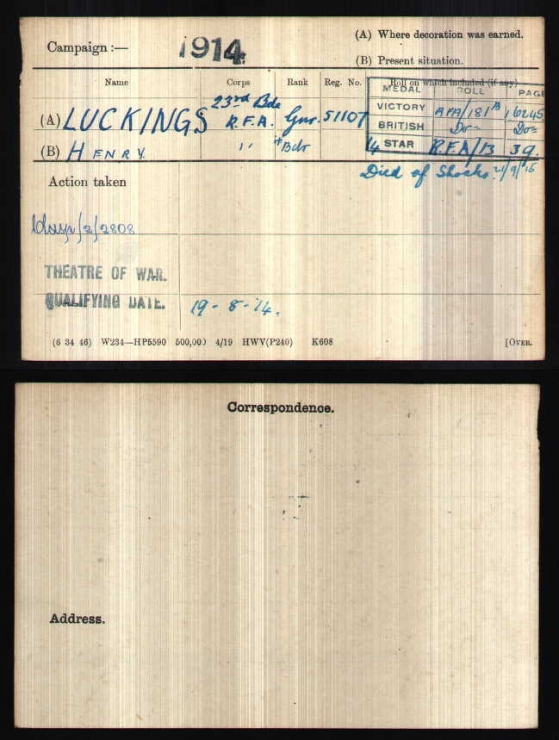 Campaign :— 1914 (A) Where decoration was earned.
(B) Present situation.
Name Corps Rank Reg. No. Roll on which included (if any)
MEDAL ROLL PAGE
(A) LUCKINGS 23rd Bde R.F.A. Gnr. 51107 VICTORY RFA/181B 16245
BRITISH Do- Do=
(B) HENRY " +Bdr 14 STAR RFA/13 39.
Died of Shocks. 21/9/15
Action taken
THEATRE OF WAR.
QUALIFYING DATE. 19-8-14.
(6 34 46) W234—HP5590 500,000 4/19 HWV(P240) K608 [OVER.
Correspondence.
Address.